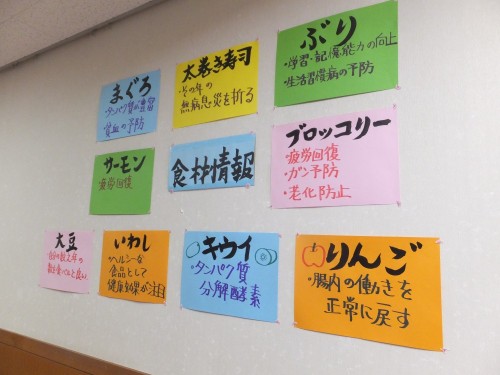 まぐろ
タンパク質が豊富
貧血の予防
太巻き寿司
・その年の
無病息災を祈る
ぶり
・学習・記憶能力の向上
・生活習慣病の予防
サーモン
・疲労回復
食材情報
ブロッコリー
・疲労回復
・ガン予防
・老化防止
大豆
数え年の
食べると良い
いわし
・ヘルシーな
食品として
健康効果が注目
キウイ
・タンパク質
分解酵素
りんご
・腸内の働きを
正常に戻す